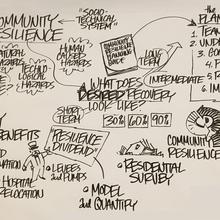 COMMUNITY
RESILIENCE
"SOCIO-
TECHNICAL
SYSTEM"
HUMAN
CAUSED
HAZARDS
HAZARDS
COMMUNITY
RESILIENCE
PLANNING
GUIDE
LONG
TERM
INTERMEDIATE
SHORT
TERM
WHAT DOES
DESIRED RECOVERY
LOOK LIKE?
30% 60% 90%
the
PLAN
1. TEAM
2. UND
3. GO
4. P
5.
6. IM
BENEFITS
"RESILIENCE
DIVIDEND"
• LEVEES
and PUMPS
HOSPITAL
RELOCATION
COMMUNITY
RESILIENCE
• RESIDENTIAL
SURVEY
• MODEL
and QUANTIFY